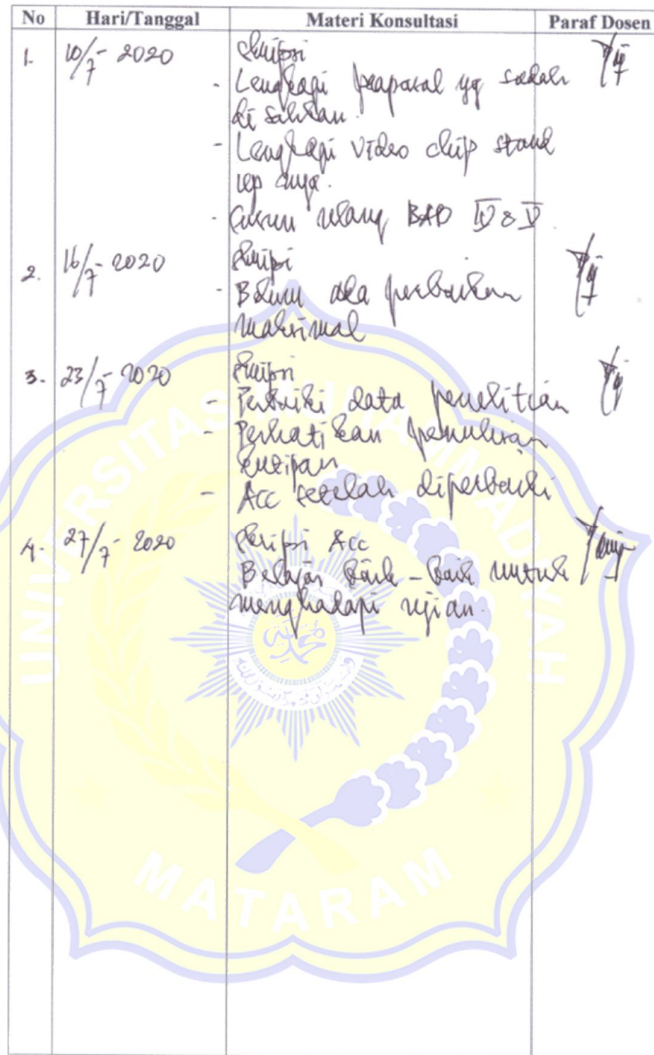 No Hari/Tanggal Materi Konsultasi Paraf Dosen
1. 10/7 - 2020 Skripsi
- Lengkapi proposal yg sudah
di sahkan.
- Lengkapi video clip stand
up nya.
- Susun ulang BAB IV & V
2. 16/7 - 2020 Skripsi
- Belum ada perbaikan
maksimal
3. 23/7 - 2020 Skripsi
- Perbaiki data penelitian
- Perhatikan penulisan
kutipan
- Acc setelah diperbaiki
4. 27/7 - 2020 Skripsi Acc
Belajar baik-baik untuk
menghadapi ujian.
UNIVERSITAS MUHAMMADIYAH
MATARAM